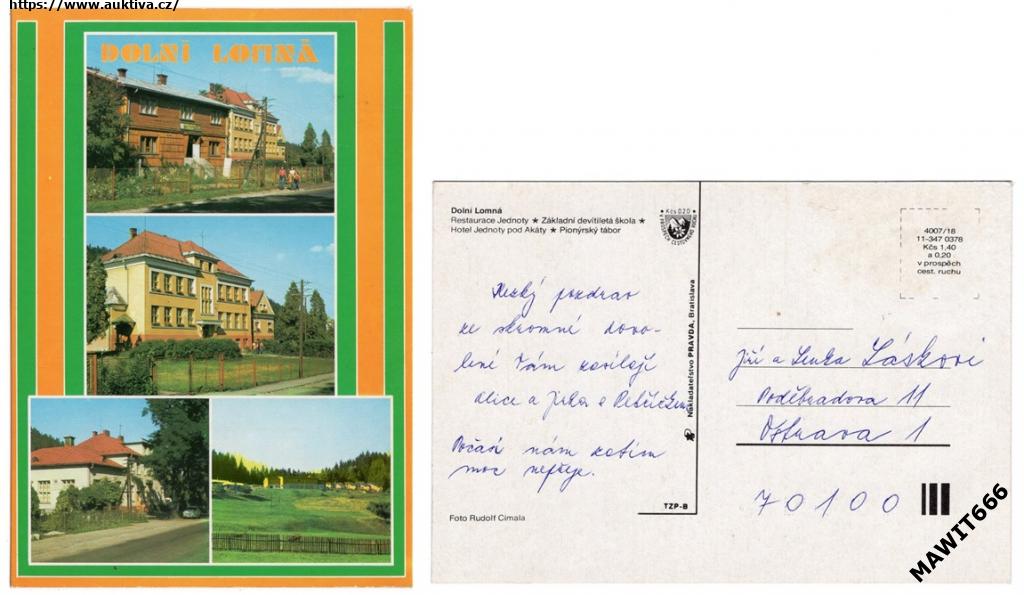 https://www.auktiva.cz/
DOLNÍ LOMNÁ
Dolní Lomná
Restaurace Jednoty ★ Základní devítiletá škola ★
Hotel Jednoty pod Akáty ★ Pionýrský tábor
Kčs 0,20
V PROSPĚCH CESTOVNÍHO RUCHU
4007/18
11-347 0378
Kčs 1,40
a 0,20
v prospěch
cest. ruchu
Hezký pozdrav
ze skromné dovo-
lené Vám posílají
Alice a Jirka s
Počasí nám zatím
moc nepřeje.
Nakladateľstvo PRAVDA, Bratislava
Jiří a Lenka Láskovi
Poděbradova 11
Ostrava 1
70100
TZP-B
Foto Rudolf Cimala
MAWIT666